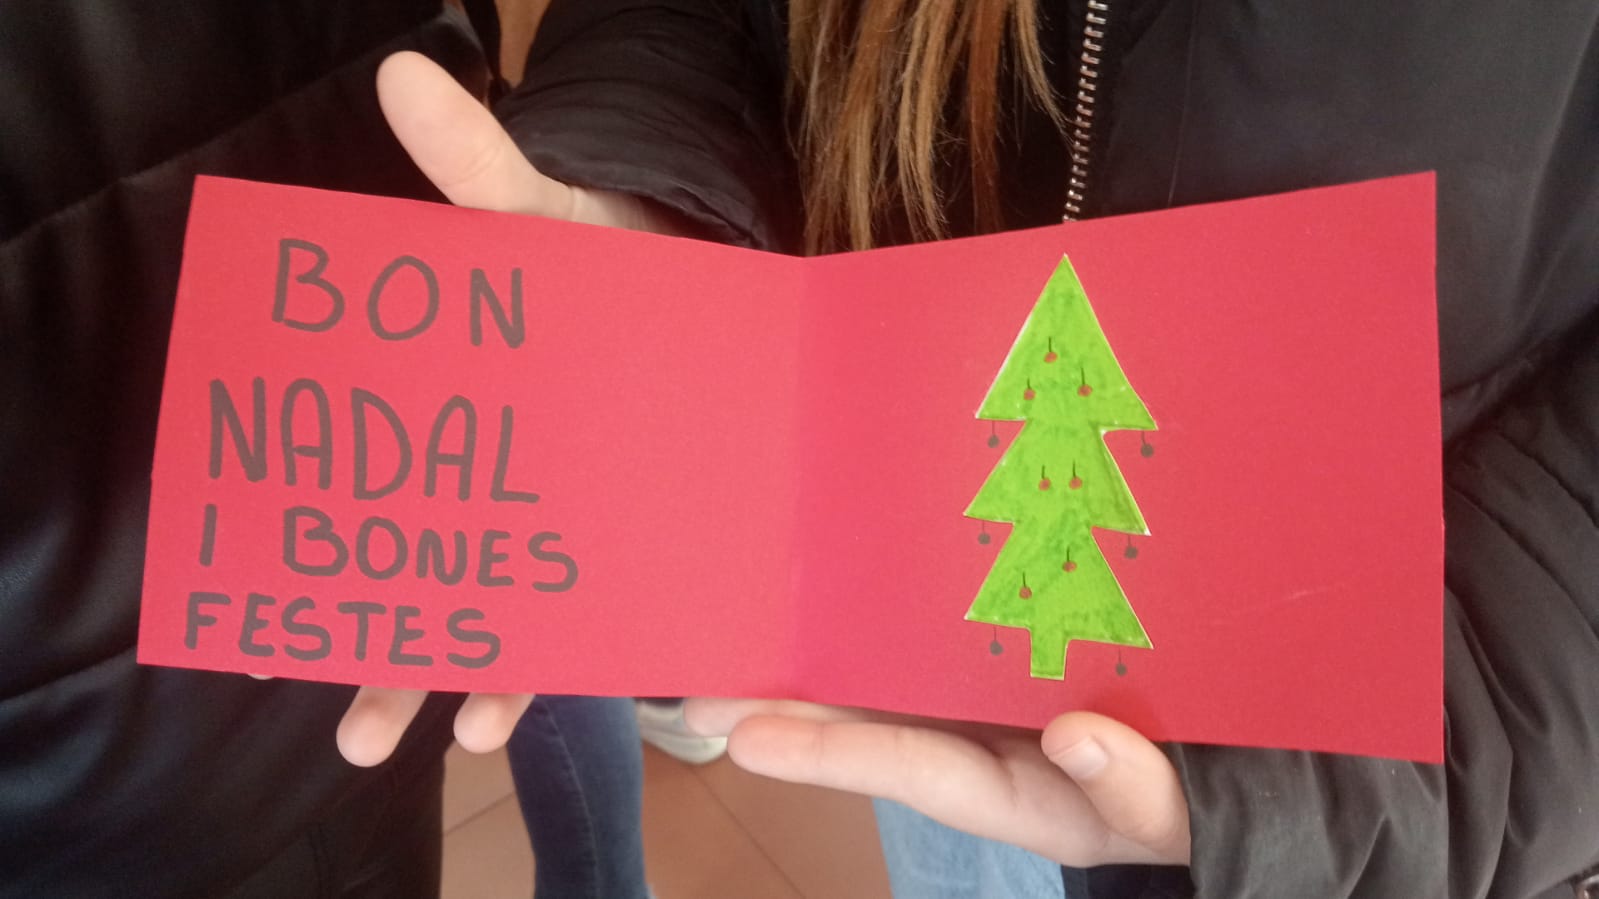 BON
NADAL
I BONES
FESTES